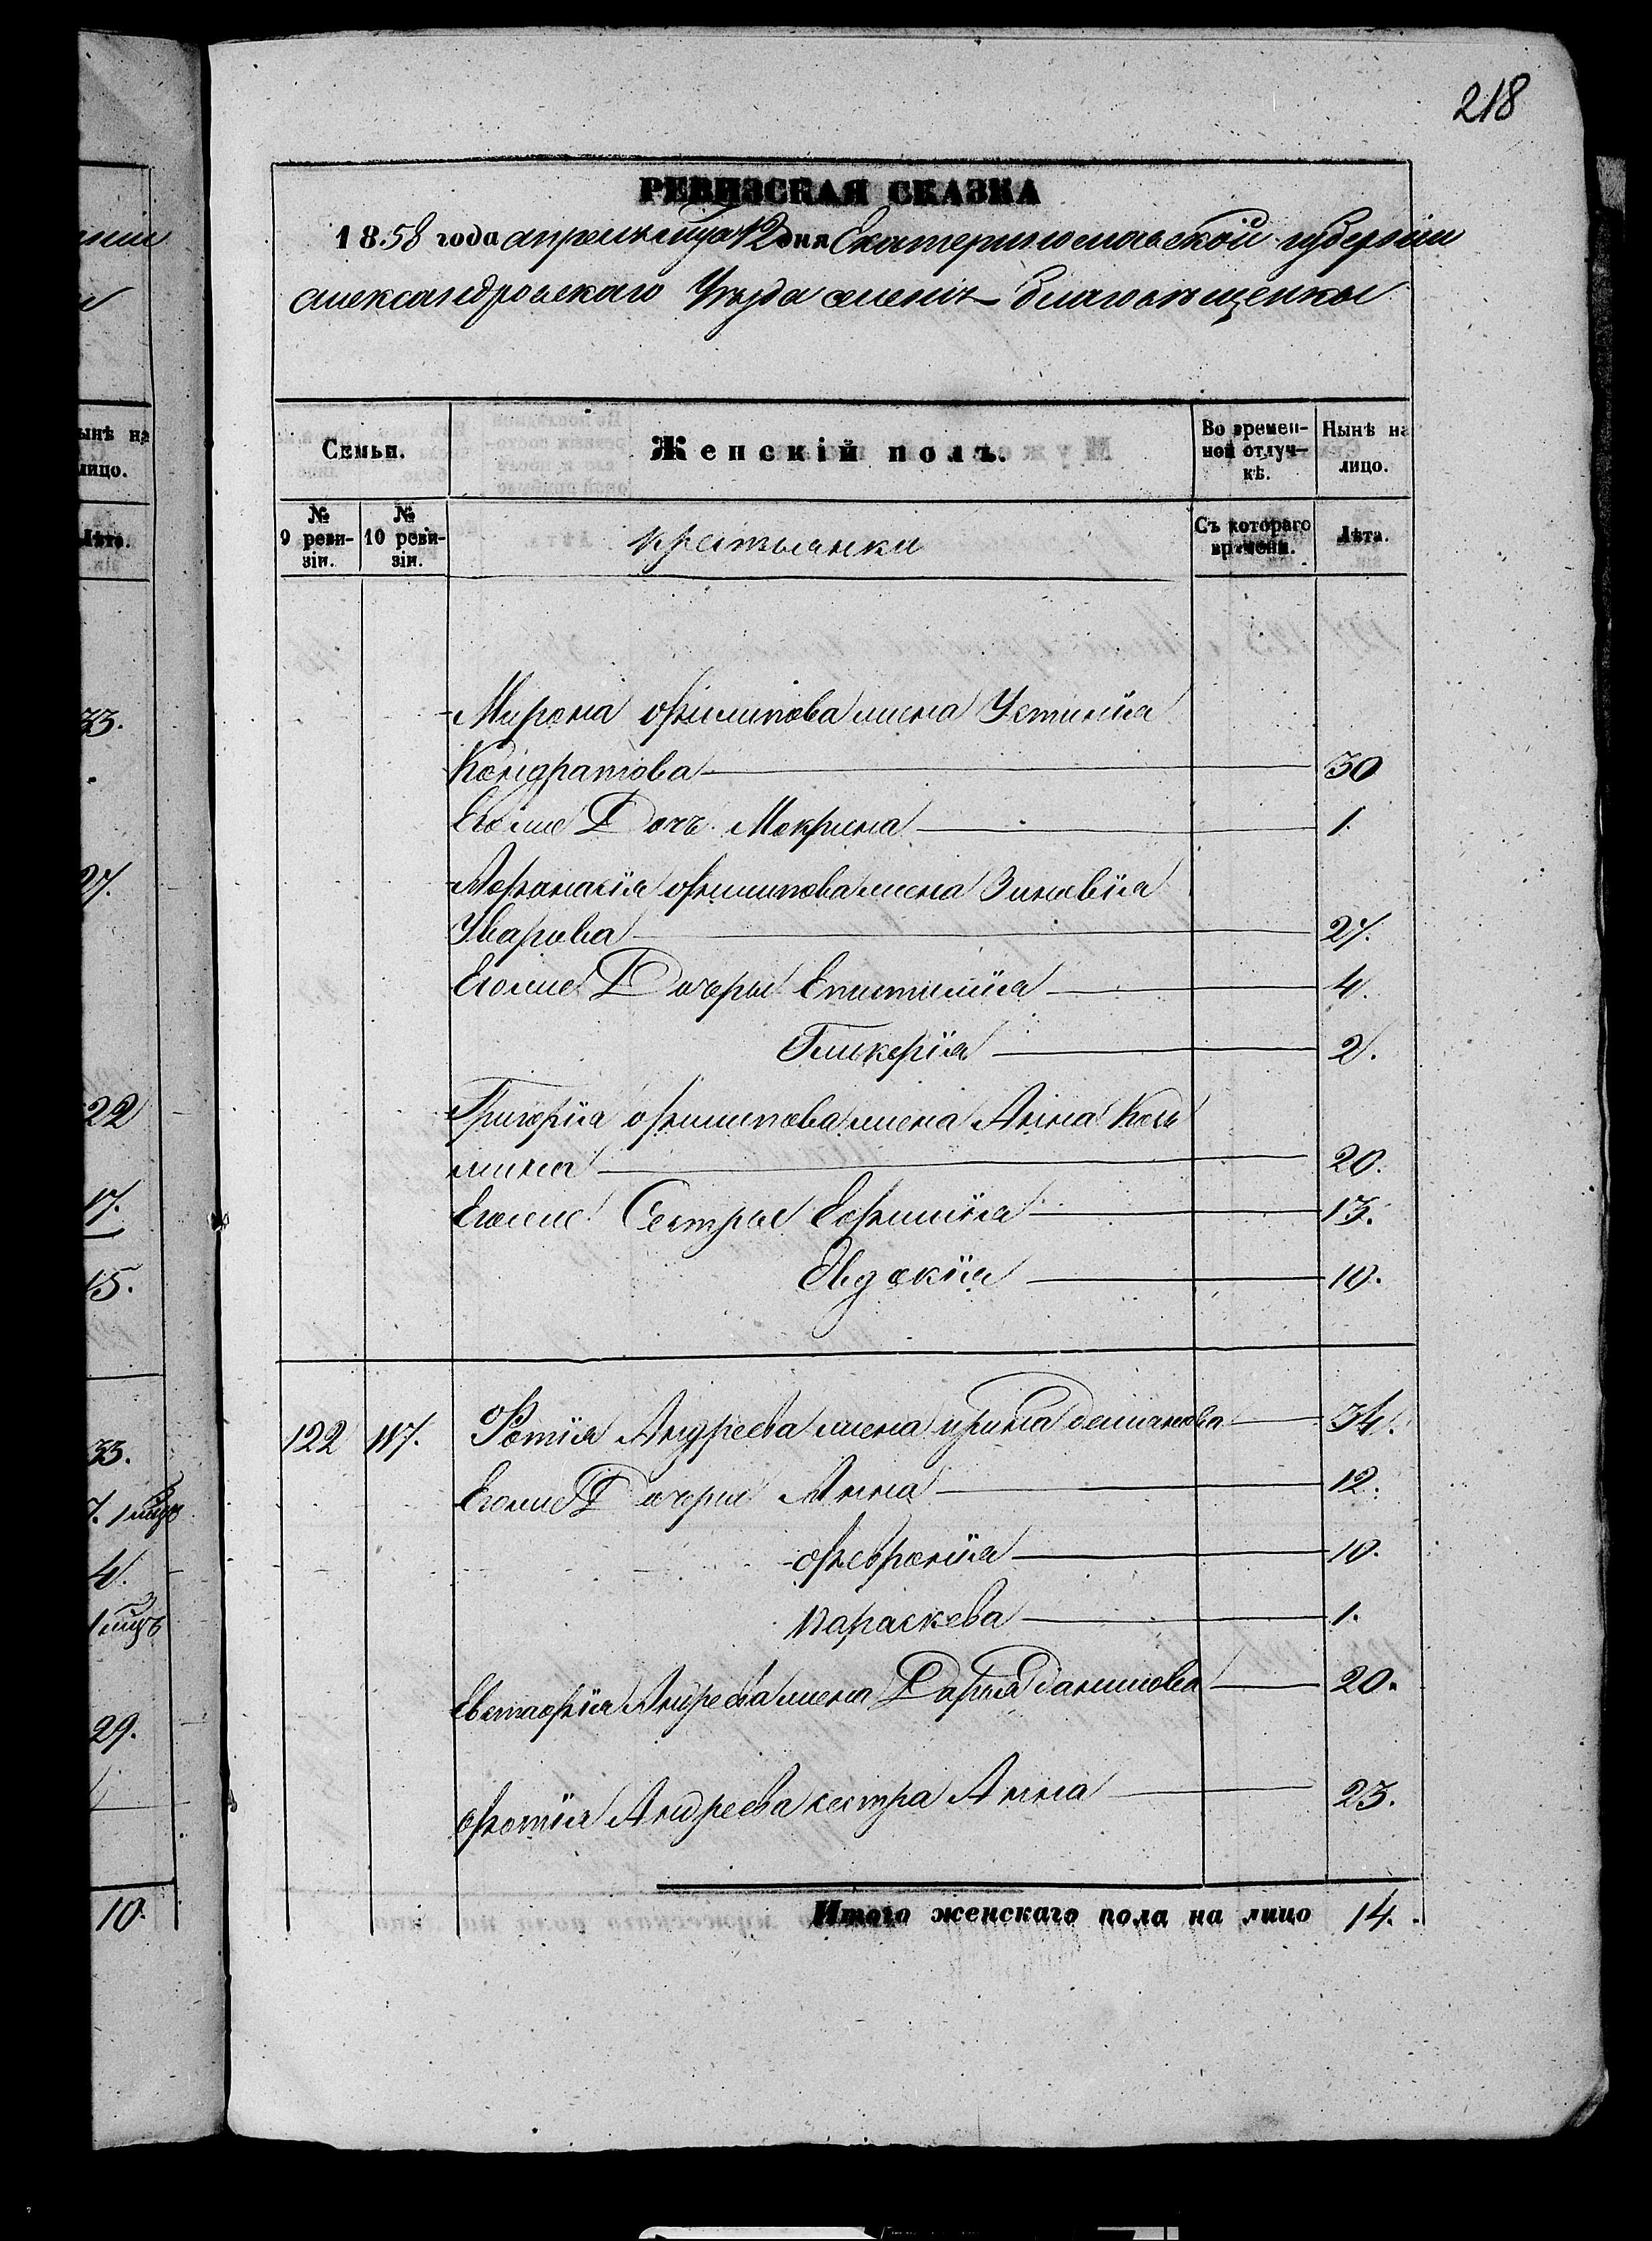 218
РЕВИЗСКАЯ СКАЗКА
1858 года апреля 12 дня Екатеринославской губернiи
Александровскаго Уезда селенiя Благовѣщенки
Семьи.
Женскiй полъ.
Во времен-
ной отлуч-
кѣ.
Нынѣ на
лицо.
№
9 реви-
зiи.
№
10 реви-
зiи.
крестьянки
Съ котораго
времени.
Лѣта.
Мирона Филипова жена Устинiя
Кондратова 30
Егоже Дочь Макрина 1.
Афанасiя Филипова жена Зиновiя
Уварова 27.
Егоже Дочеры Епистимiя 4.
Гликерiя 2.
Григорiя Филипова жена Анна Козь
мина 20.
Егоже Сестры Ефимiя 13.
Евдокiя 10.
122 117. Фотiя Андреева жена Ирина Демянова 34.
Егоже Дочеры Анна 12.
Февронiя 10.
Параскева 1.
Евстафiя Андреева жена Дарья Данилова 20.
Фотiя Андреева сестра Анна 23.
Итого женскаго пола на лицо 14.
ынѣ на
лицо.
Лѣта.
33.
27.
22
17.
15.
33.
7.
4.
1
29.
10.